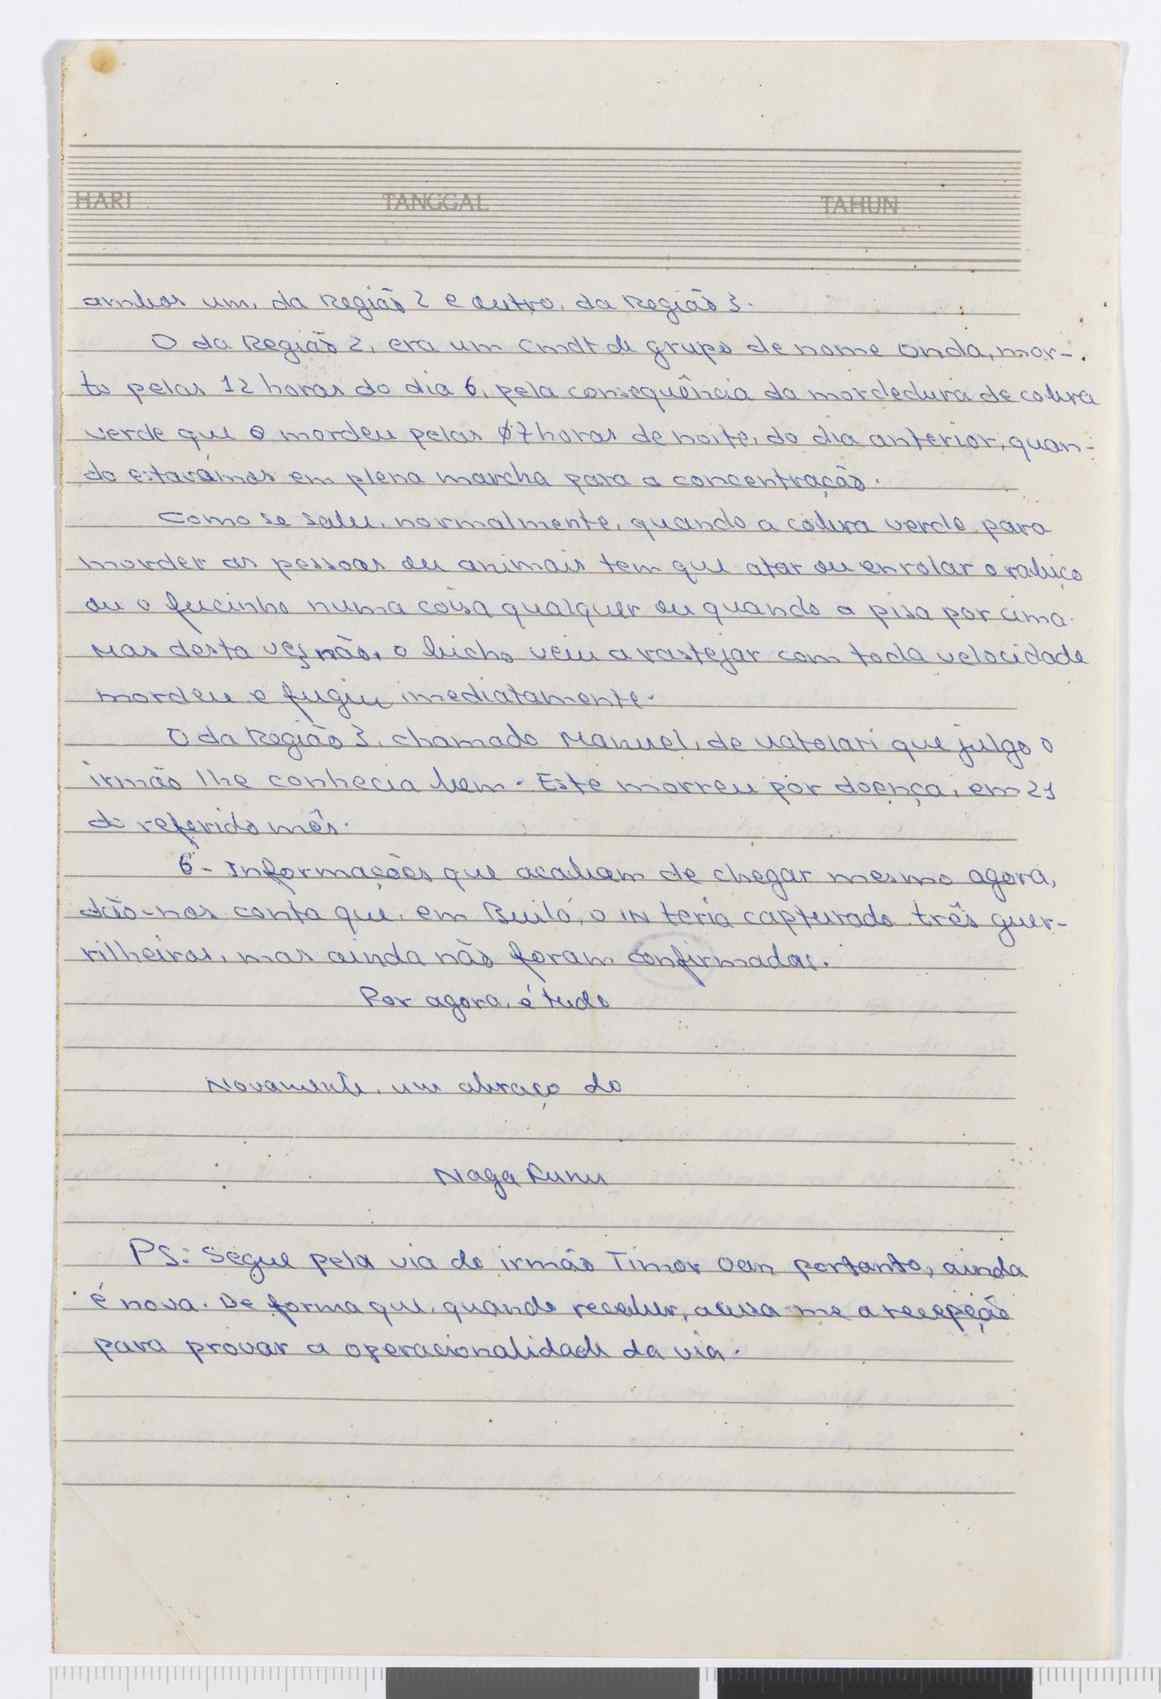 HARI TANGGAL TAHUN
ambos um, da Região 2 e outro, da Região 3.
O da Região 2, era um Cmdt de grupo de nome Onda, mor-
to pelas 12 horas do dia 6, pela consequência da mordedura de cobra
verde que o mordeu pelas 07 horas de noite, do dia anterior, quan-
do estavamos em plena marcha para a concentração.
Como se sabe, normalmente, quando a cobra verde para
morder as pessoas ou animais tem que atar ou enrolar o rabiço
ou o fucinho numa coisa qualquer ou quando a pisa por cima.
Mas desta vez não, o bicho veiu arastejar com toda velocidade
mordeu e fugiu imediatamente.
O da Região 3, chamado Manuel, de Uatolari que julgo o
irmão lhe conhecia bem. Este morreu por doença, em 21
do referido mês.
6- Informações que acabam de chegar mesmo agora,
dão-nos conta que, em Builó, o IN teria capturado três guer-
rilheiros, mas ainda não foram confirmadas.
Por agora, é tudo
Novamente, um abraço do
Naga Runu
PS: Segue pela via do irmão Timor Oan portanto, ainda
é nova. De forma que, quando receber, acusa-me a recepção
para provar a operacionalidade da via.